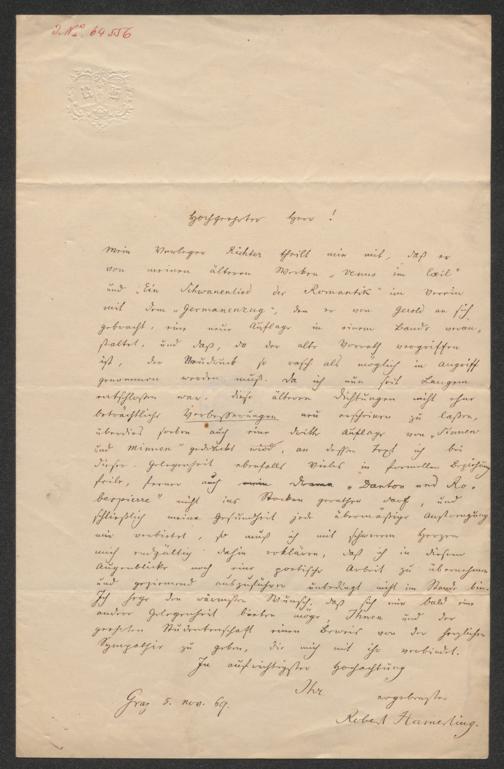 J. No 64556
Hochgeehrter Herr!
Mein Verleger Richter theilt mir mit, daß er
von meinen älteren Werken „Venus im Exil"
und „Ein Schwanenlied der Romantik" im Verein
mit dem „Germanenzug", den er von Gerold an sich
gebracht, eine neue Auflage in einem Bande veran-
staltet, und daß, da der alte Vorrath vergriffen
ist, der Neudruck so rasch als möglich in Angriff
genommen werden muß. Da ich nun seit Langem
entschlossen war, diese älteren Dichtungen nicht ohne
beträchtliche Verbesserungen neu erscheinen zu lassen,
überdies soeben auch eine dritte Auflage von „Sinnen
und Minnen" gedruckt wird, an dessen Text ich bei
dieser Gelegenheit ebenfalls Vieles in formeller Beziehung
feile, ferner auch mein Drama „Danton und Ro-
bespierre" nicht ins Stocken gerathen darf, und
schließlich meine Gesundheit jede übermäßige Anstrengung
mir verbietet, so muß ich mit schwerem Herzen
mich endgültig dahin erklären, daß ich in diesem
Augenblicke noch eine poetische Arbeit zu übernehmen
und geziemend auszuführen unbedingt nicht im Stande bin.
Ich hege den wärmsten Wunsch, daß sich mir bald eine
andere Gelegenheit bieten möge, Ihnen und der
geehrten Studentenschaft einen Beweis von der herzlichen
Sympathie zu geben, die mich mit ihr verbindet.
In aufrichtigster Hochachtung
Ihr ergebenster
Graz 5. Nov. 69.
Robert Hamerling.